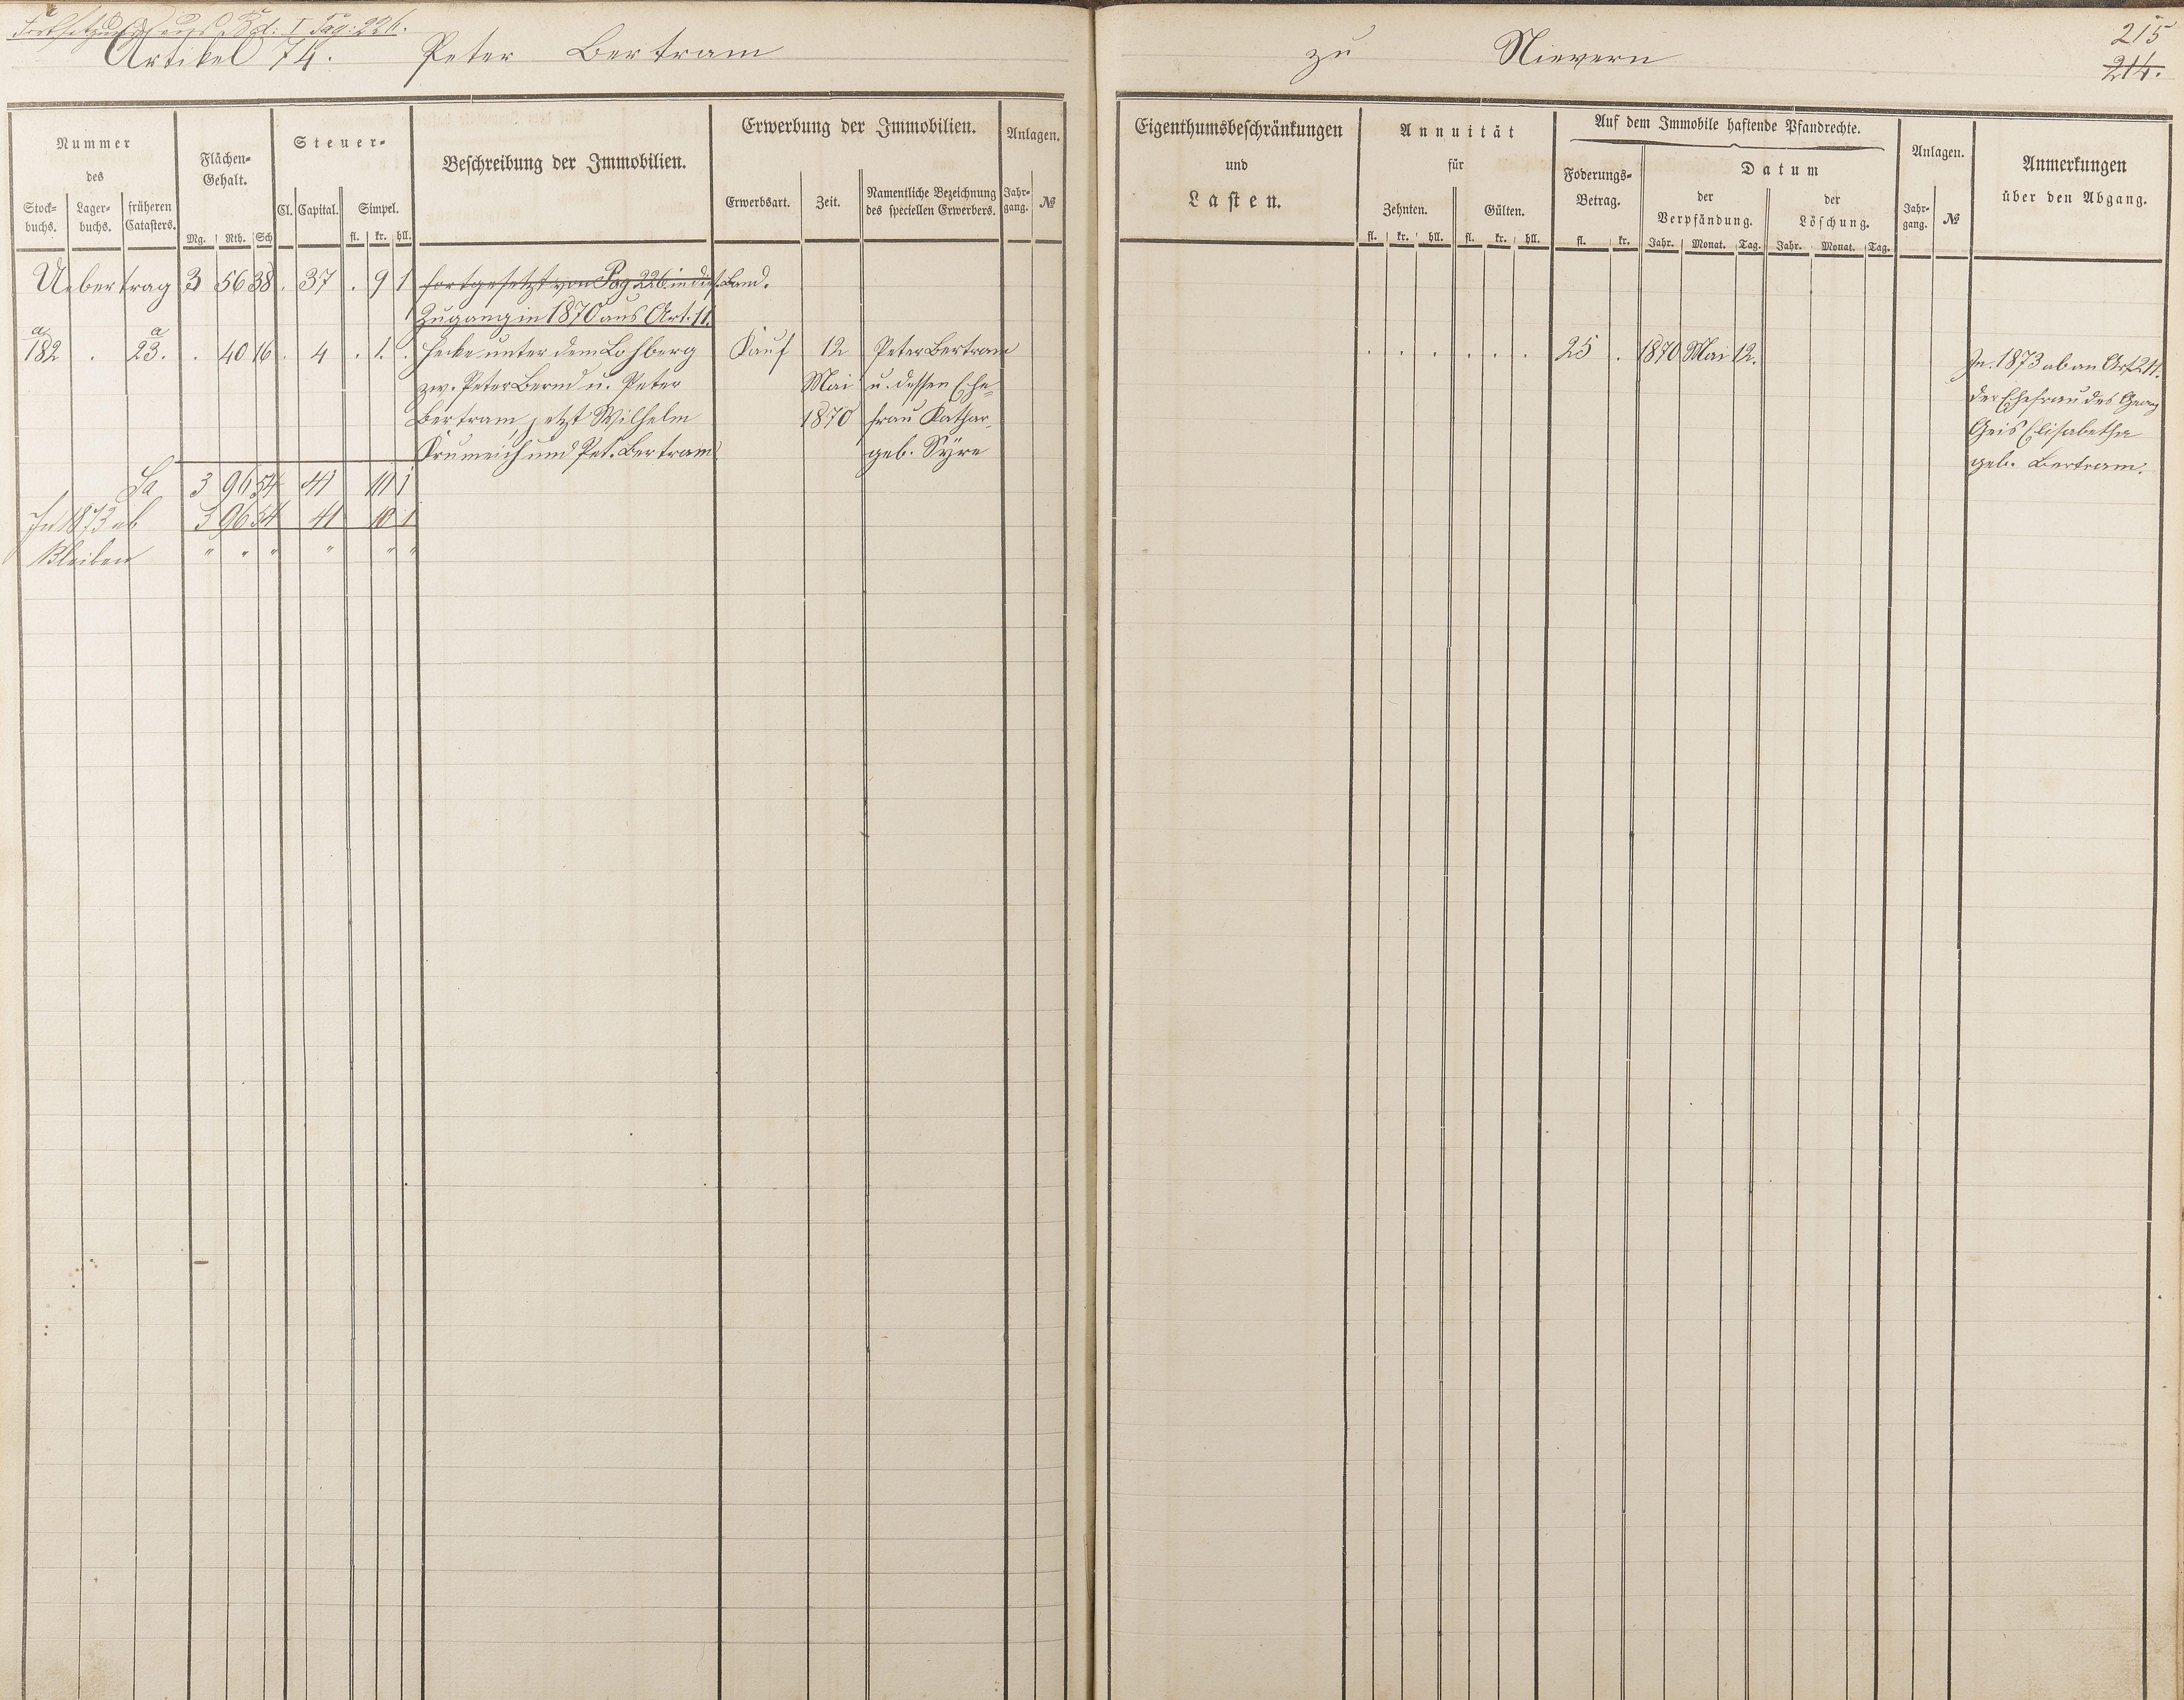 Fortsetzung aus Bd: I Pag: 226.
Artikel 74. Peter Bertram
zu Nievern
215
214.
Nummer
des
Stock-
buchs.
Lager-
buchs.
früheren
Catasters.
Flächen-
Gehalt.
Mg. Rth. Sch
Steuer-
Cl. Capital. Simpel.
fl. kr. hll.
Beschreibung der Immobilien.
Erwerbung der Immobilien.
Erwerbsart. Zeit.
Namentliche Bezeichnung
des speciellen Erwerbers.
Anlagen.
Jahr-
gang. №
Eigenthumsbeschränkungen
und
Lasten.
Annuität
für
Zehnten. Gülten.
fl. kr. hll. fl. kr. hll.
Auf dem Immobile haftende Pfandrechte.
Foderungs-
Betrag.
fl. kr.
Datum
der
Verpfändung.
der
Löschung.
Jahr. Monat. Tag. Jahr. Monat. Tag.
Anlagen.
Jahr-
gang. №
Anmerkungen
über den Abgang.
Uebertrag 3 56 38 . 37 . 9 1 fortgesetzt von Pag 226 in dies. Band.
Zugang in 1870 aus Art. 11.
a a
182 . 23. . 40 16 . 4 . 1 . Hecke unter dem Lohberg Kauf 12 Peter Bertram . . . . . . 25 . 1870 Mai 12. In 1873 ab an Art 211.
zw. Peter Bernd u. Peter Mai u. dessen Ehe- der Ehefrau des Georg
Bertram, jetzt Wilhelm 1870 frau Kathar. Geis Elisabetha
Krumeich und Pet. Bertram geb. Syre geb. Bertram.
Sa 3 96 54 41 10 1
In 1873 ab 3 96 54 41 10 1
Bleiben " " " " " "